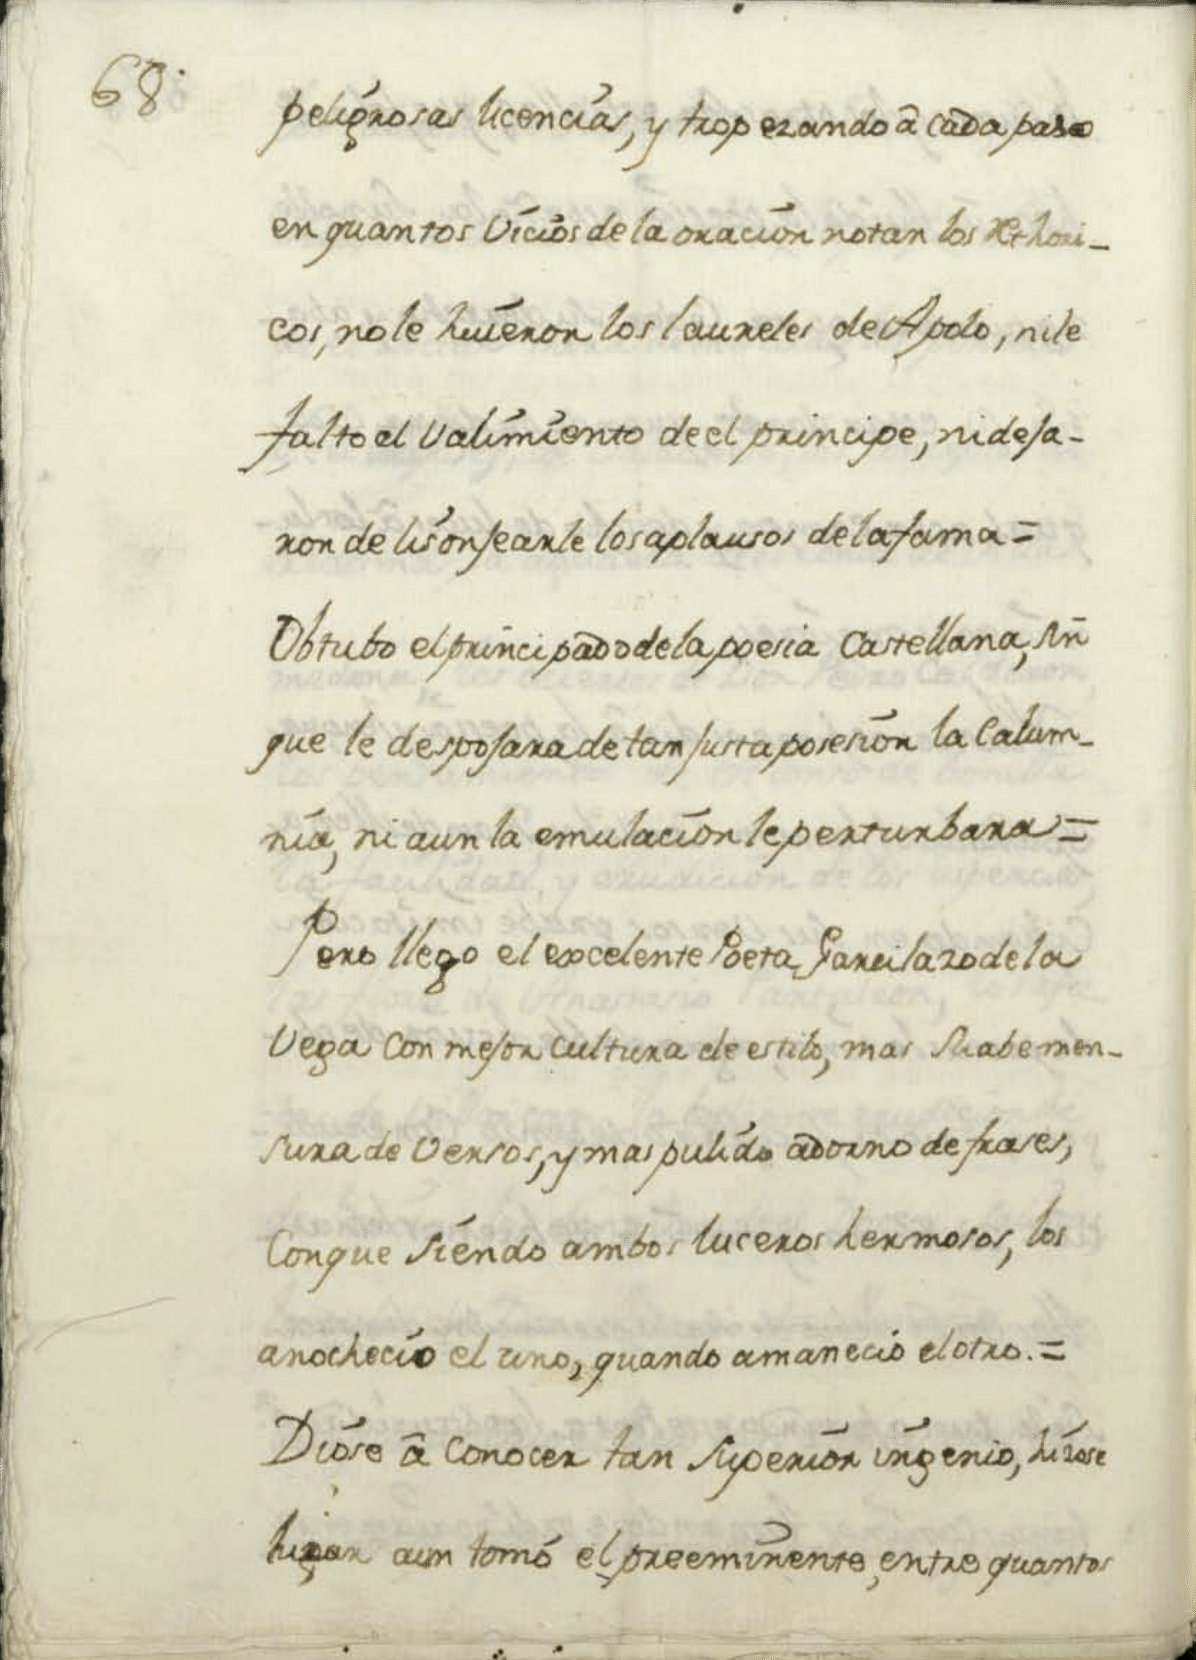 68.
peligrosas licencias, y tropezando â cada paso
en quantos vicios de la oracion notan los Rethori-
cos, no le huieron los laureles de Apolo, ni le
falto el valimiento de el principe, ni deja-
ron de lisonjearle los aplausos de la fama =
Obtubo el principado de la poesia Castellana, sin
que le despojara de tan justa posesion la calum-
nia, ni aun la emulacion le perturbara =
Pero llego el excelente Poeta Garcilazo de la
Vega con mejor cultura de estilo, mas suabe men-
sura de versos, y mas pulido adorno de frases,
Conque siendo ambos luceros hermosos, los
anochecio el uno, quando amanecio el otro. =
Diose â conocer tan superior ingenio, hizose
lugar aun tomó el preeminente, entre quantos